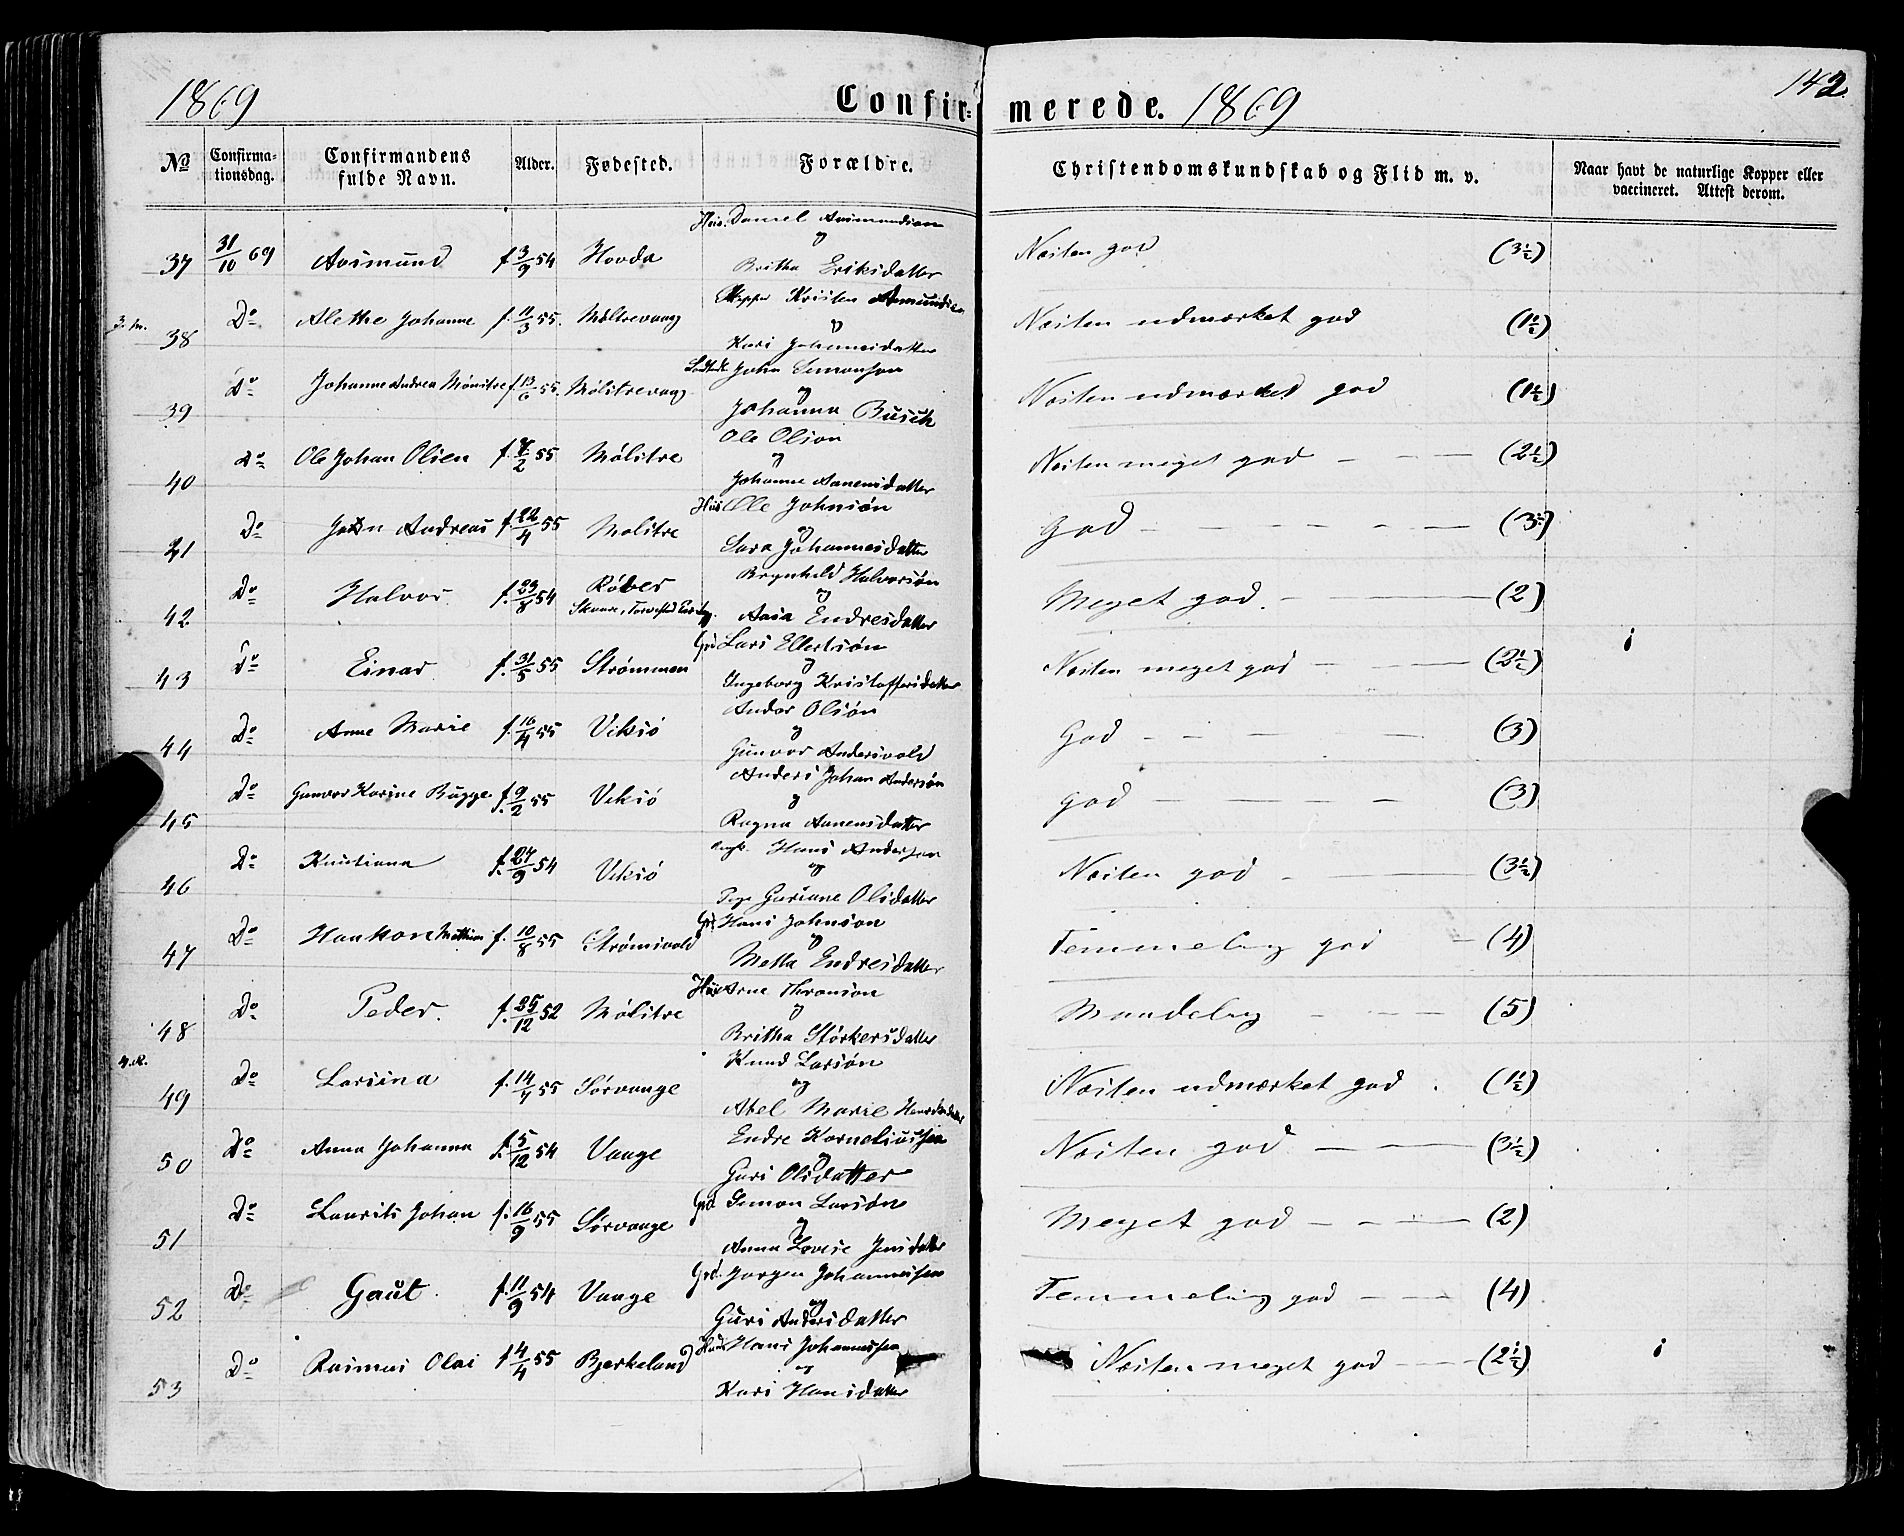 1869 Confir= merede. 1869 142
No Confirma-tionsdag. Confirmandens fulde Navn. Alder. Fødested. Forældre. Christendomskundskab og Flid m. v. Naar havt de naturlige Kopper eller vaccineret. Attest derom.
Huus. Daniel Aasmundsen
og
37 31/10 69 Aasmund f. 3/9 54 Hovda Britha Eriksdatter Næsten god (3½)
Kristen Asmundsen
38 Do Alethe Johanne f. 11/3 55. Møltrevaag og Næsten udmærket god (1½)
Kari Johannesdatter
John Simonsen
39 Do Johanne Andrea Mønitre f. 13/6 55. Mølitrevaag og Næsten udmærket god (1½)
Johanna Busch
Ole Olson
40 Do Ole Johan Olsen f. 7/2 55 Mølstre og Næsten meget god — — — (2½)
Johanne Aanensdatter
Huus Ole Johnsøn
41 Do John Andreas f. 22/4 55 Molstre og God — — — — (3½)
Sara Johannesdatter
Brynhild Halvorsøn
42 Do Halvor f. 23/8 54 Røber og Meget god. — (2)
Aasa Endresdatter
Grd Lars Ellertsøn
43 Do Einar f. 31/5 55 Strømmen og Næsten meget god — — (2½) i
Ingeborg Kristoffersdatter
Andor Olsøn
44 Do Anne Marie f. 16/4 55 Viksö og God — — — (3)
Gunvor Andersvold
Anders Johan Andersøn
45 Do Gunvor Karine Bugge f. 9/2 55 Viksö og god — — — — (3)
Ragna Aanensdatter
Hans Andersen
46 Do Kristiana f. 27/9 54 Viksö og Næsten god — (3½)
Pige Guriane Olsdatter
Grd Hans Johnson
47 Do Haakon Mathias f. 10/8 55 Strømsvold og Temmelig god — (4)
Metta Endresdatter
Huus Arne Thronson
48 Do Peder. f. 25/12 52 Mølstre og Maadelig — — — (5)
Britha Størkersdatter
Knud Larsøn
49 Do Larsina f. 14/7 55 Sørvaage og Næsten udmærket god . (1½)
Abel Marie Henriksdatter
Endre Korneliussen
50 Do Anna Johanna f. 5/12 54 Vaage og Næsten god — — (3½)
Guri Olsdatter
Grd Simon Larsøn
51 Do Laurits Johan f. 16/9 55 Sørvaage og Meget god — — — (2)
Anna Lovise Jensdatter
Grd. Jørgen Johannessen
52 Do Gaut. f. 11/9 54 Vaage og Temmelig god — — (4)
Guri Andersdatter
Huus Hans Johannessen
53 Do Rasmus Olai f 4/4 55 Bjerkeland og Næsten meget god — — (2½) i
Kari Hansdatter